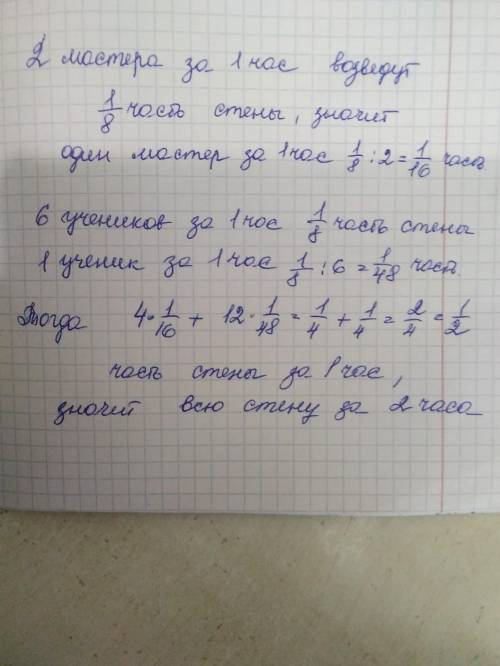 2 мастера за 1 час возведут
1/8 часть стены, значит
один мастер за 1 час 1/8 : 2 = 1/16 часть
6 учеников за 1 час 1/8 часть стены
1 ученик за 1 час 1/8 : 6 = 1/48 част.
Тогда 4 · 1/16 + 12 · 1/48 = 1/4 + 1/4 = 2/4 = 1/2
часть стены за 1 час,
значит всю стену за 2 часа